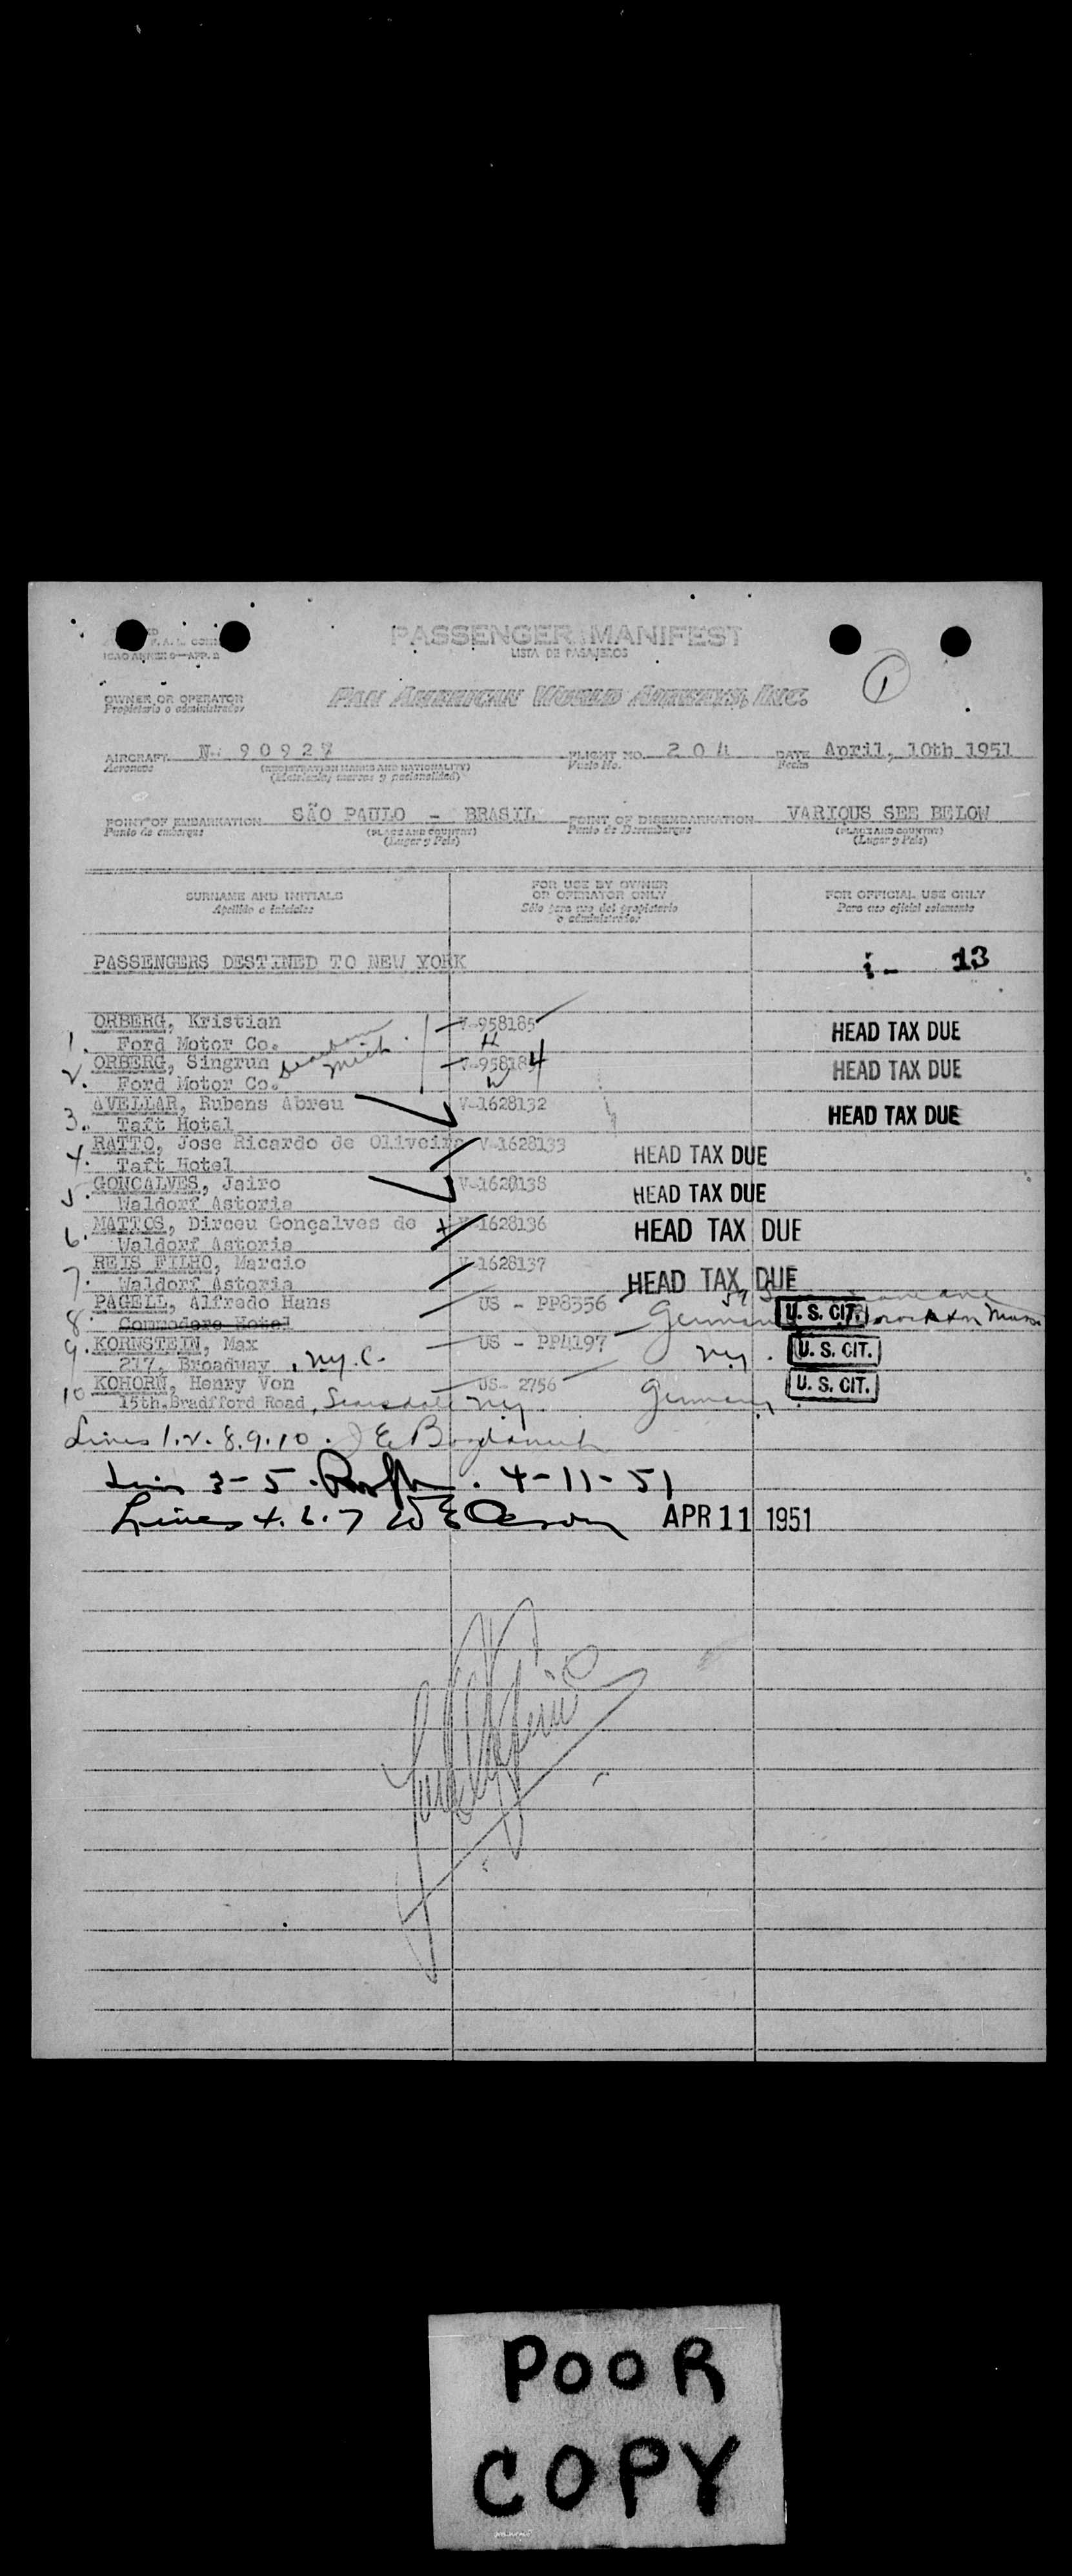 PASSENGER MANIFEST
LISTA DE PASAJEROS
ICAO ANNEX 9—APP. 2
OWNER OR OPERATOR PAN AMERICAN WORLD AIRWAYS, INC.
Propietario o administrador
1
AIRCRAFT N. 9092 FLIGHT NO. 204 DATE April, 10th 1951
Aeronave (REGISTRATION MARKS AND NATIONALITY) Vuelo No. Fecha
(Matrícula, marcas y nacionalidad)
POINT OF EMBARKATION SÃO PAULO - BRASIL POINT OF DISEMBARKATION VARIOUS SEE BELOW
Punto de embarque (PLACE AND COUNTRY) Punto de Desembarque (PLACE AND COUNTRY)
(Lugar y País) (Lugar y País)
SURNAME AND INITIALS FOR USE BY OWNER OR OPERATOR ONLY FOR OFFICIAL USE ONLY
Apellido e iniciales Sólo para uso del propietario o administrador Para uso oficial solamente
PASSENGERS DESTINED TO NEW YORK i- 13
ORBERG, Kristian V-958185 HEAD TAX DUE
1. Ford Motor Co. Dearborn H
ORBERG, Singrun Mich. V-958184 HEAD TAX DUE
2. Ford Motor Co. W
AVELLAR, Rubens Abreu V-1628132 HEAD TAX DUE
3. Taft Hotel
RATTO, Jose Ricardo de Oliveira V-1628133 HEAD TAX DUE
4. Taft Hotel
GONCALVES, Jairo V-1628138 HEAD TAX DUE
5 Waldorf Astoria
MATTOS, Dirceu Gonçalves de V-1628136 HEAD TAX DUE
6. Waldorf Astoria
REIS FILHO, Marcio V-1628137 HEAD TAX DUE
7. Waldorf Astoria
PAGELL, Alfredo Hans US - PP8356 Germany U. S. CIT. Brockton Mass
8. Commodore Hotel
9. KORNSTEIN, Max US - PP4197 NY. U. S. CIT.
217, Broadway, N.Y.C.
10 KOHORN, Henry Von US- 2756 Germany U. S. CIT.
15th, Bradfford Road, Scarsdale NY.
Lines 1.2.8.9.10. J E
Lines 3-5. 4-11-51
Lines 4.6.7 W E APR 11 1951
POOR
COPY